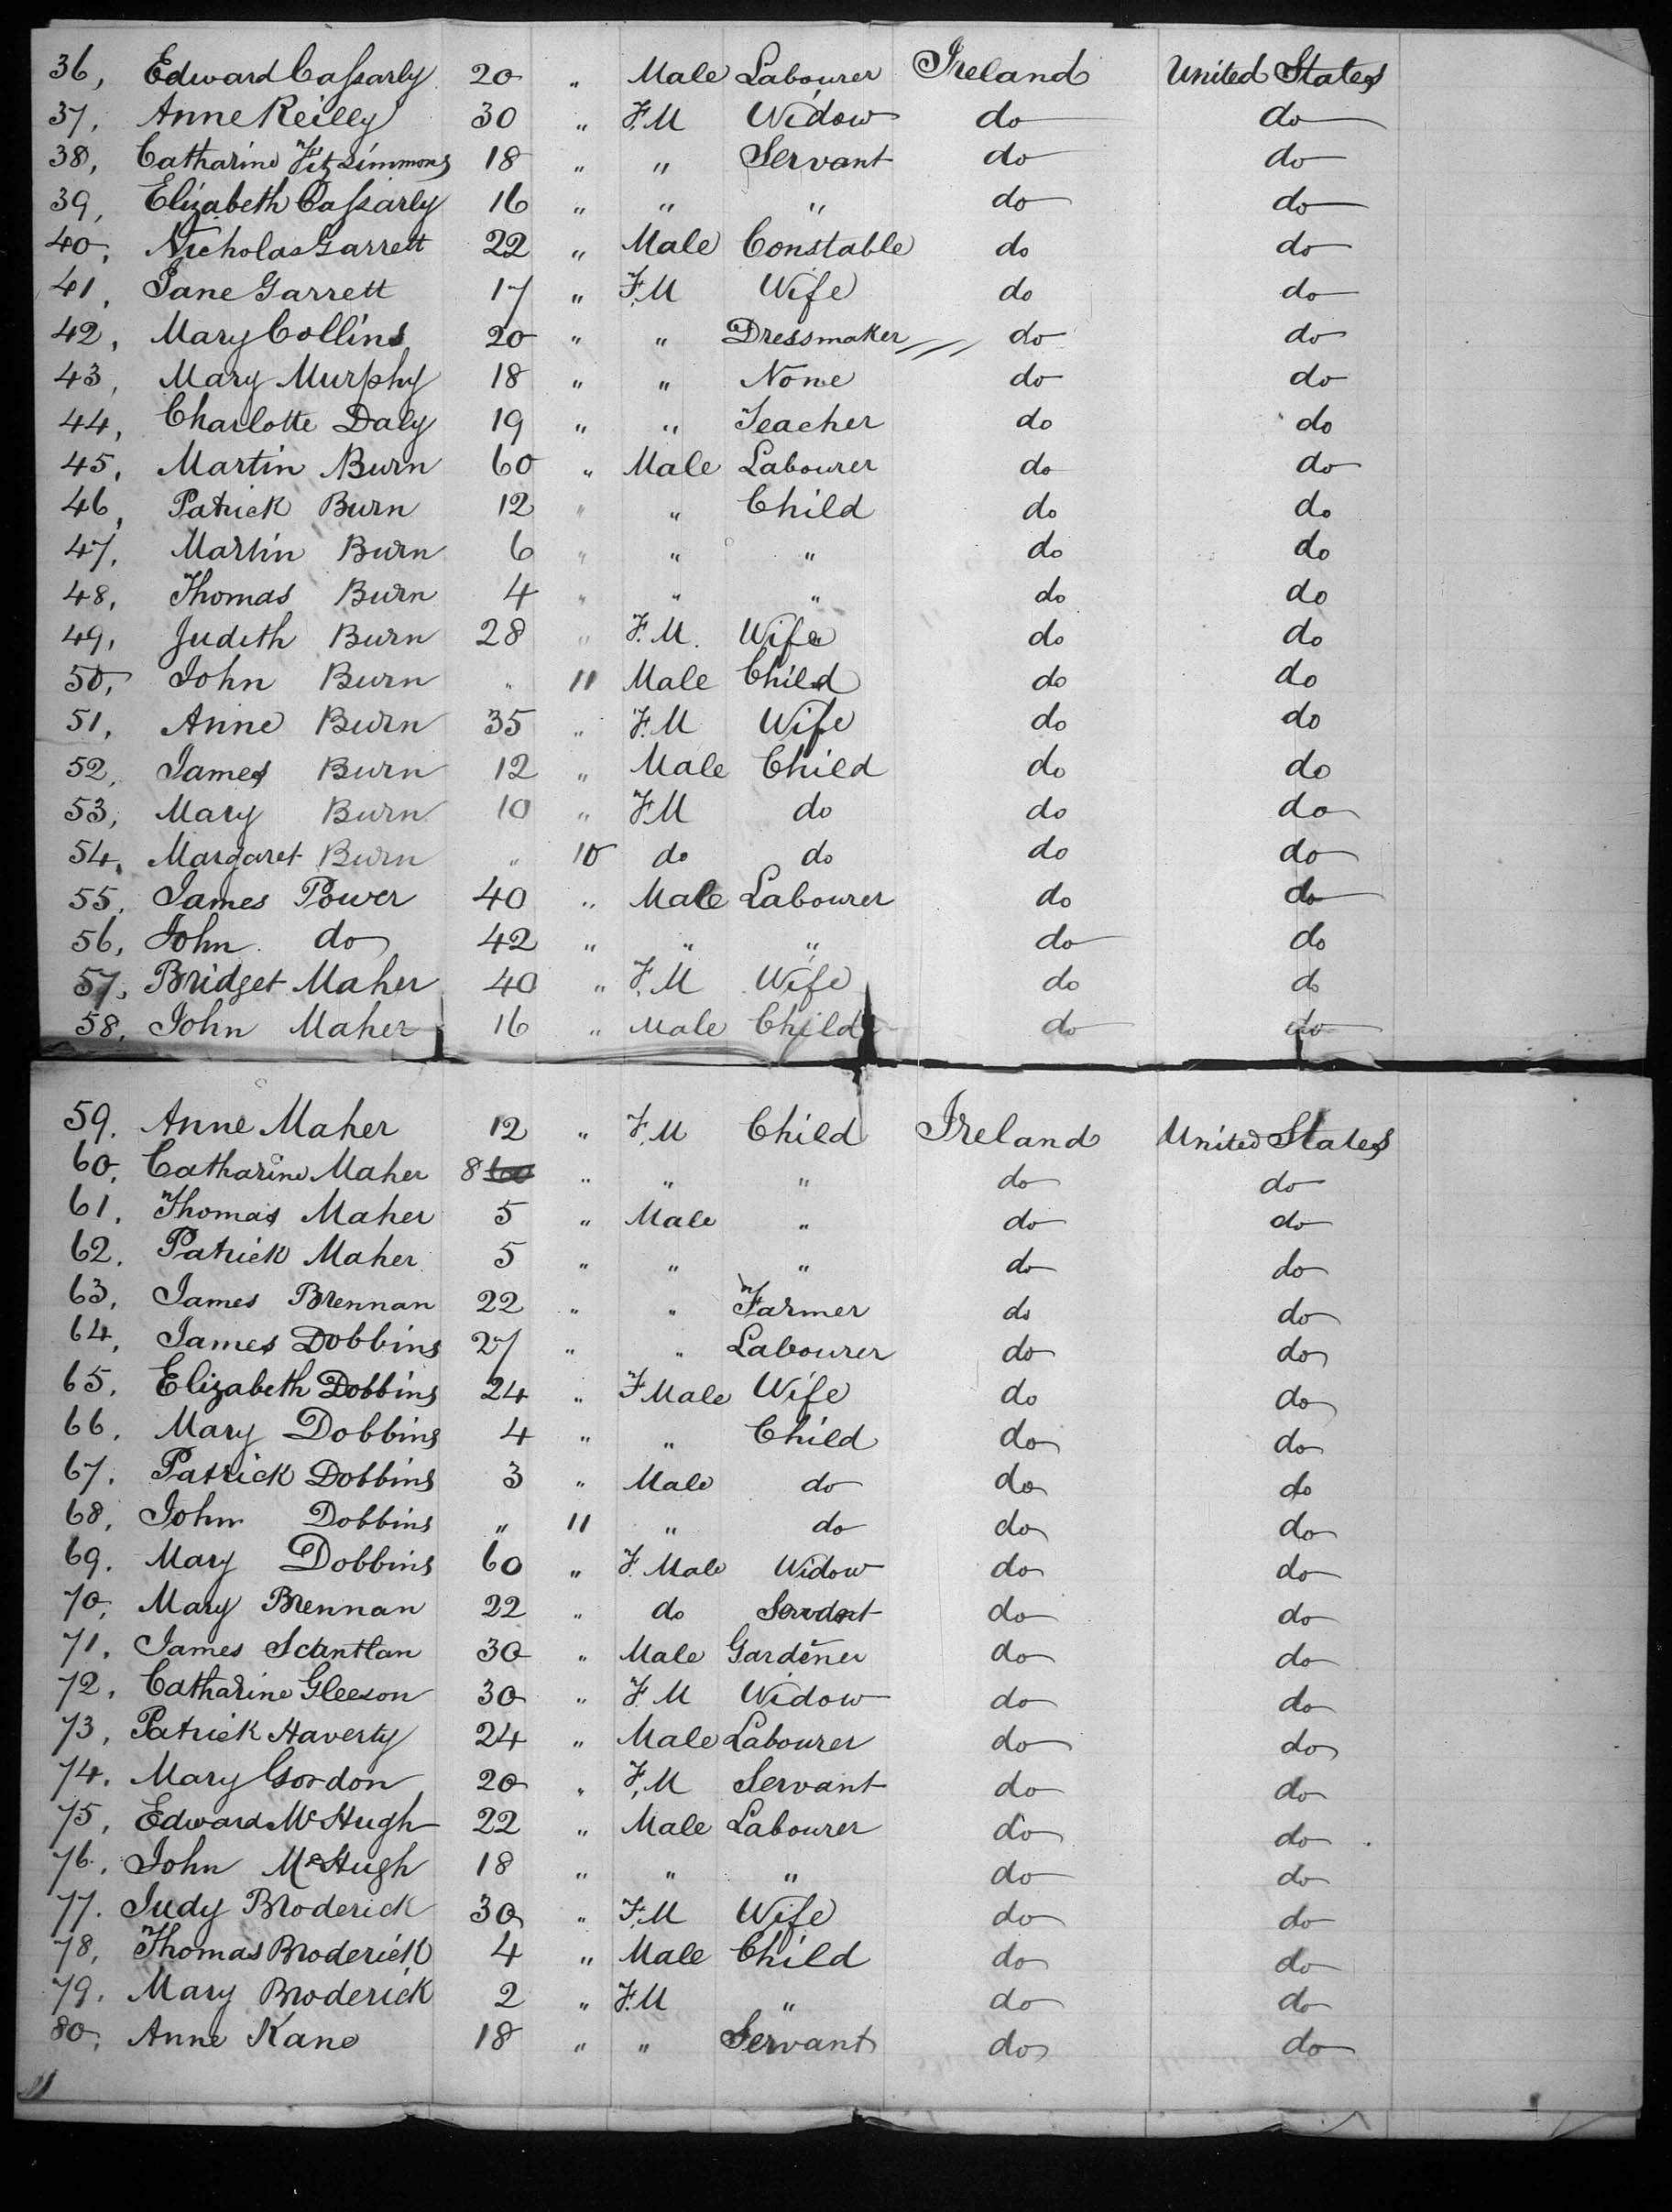 36, Edward Caſsarly 20 " Male Labourer Ireland United States
37, Anne Reilly 30 " F.M Widow do do
38, Catharine Fitzsimmons 18 " " Servant do do
39, Elizabeth Caſsarly 16 " " " do do
40, Nicholas Garrett 22 " Male Constable do do
41, Jane Garrett 17 " F.M Wife do do
42, Mary Collins 20 " " Dressmaker do do
43, Mary Murphy 18 " " None do do
44, Charlotte Daly 19 " " Teacher do do
45, Martin Burn 60 " Male Labourer do do
46, Patrick Burn 12 " " Child do do
47, Martin Burn 6 " " " do do
48, Thomas Burn 4 " " " do do
49, Judith Burn 28 " F.M. Wife do do
50, John Burn " 11 Male Child do do
51, Anne Burn 35 " F.M Wife do do
52, James Burn 12 " Male Child do do
53, Mary Burn 10 " F.M do do do
54, Margaret Burn " 10 do do do do
55, James Power 40 " Male Labourer do do
56, John do 42 " " " do do
57, Bridget Maher 40 " F.M Wife do do
58, John Maher 16 " Male Child do do
59. Anne Maher 12 " F.M Child Ireland United States
60, Catharine Maher 8 " " " do do
61, Thomas Maher 5 " Male " do do
62, Patrick Maher 5 " " " do do
63, James Brennan 22 " " Farmer do do
64, James Dobbins 27 " " Labourer do do
65, Elizabeth Dobbins 24 " F Male Wife do do
66, Mary Dobbins 4 " " Child do do
67, Patrick Dobbins 3 " Male do do do
68, John Dobbins " 11 " do do do
69. Mary Dobbins 60 " F. Male Widow do do
70, Mary Brennan 22 " do Servant do do
71, James Scantlan 30 " Male Gardener do do
72, Catharine Gleeson 30 " F.M Widow do do
73, Patrick Haverty 24 " Male Labourer do do
74, Mary Gordon 20 " F.M Servant do do
75, Edward McHugh 22 " Male Labourer do do
76, John McHugh 18 " " " do do
77. Judy Broderick 30 " F.M Wife do do
78, Thomas Broderick 4 " Male Child do do
79. Mary Broderick 2 " F.M " do do
80, Anne Kane 18 " " Servant do do